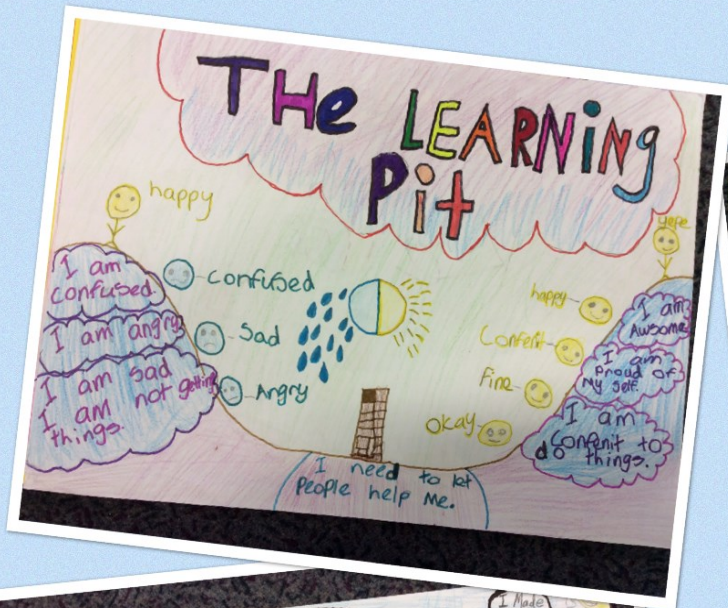 THe LEARNiNg
Pit
happy
I am
confused.
I am angry
I am sad
I am not getting
things.
confused
Sad
Angry
I need to let
People help Me.
yepe
happy
Confenit
fine
Okay
I am
Awsome
I am
Proud Of
My self.
I am
Confenit to
do things.
I Made